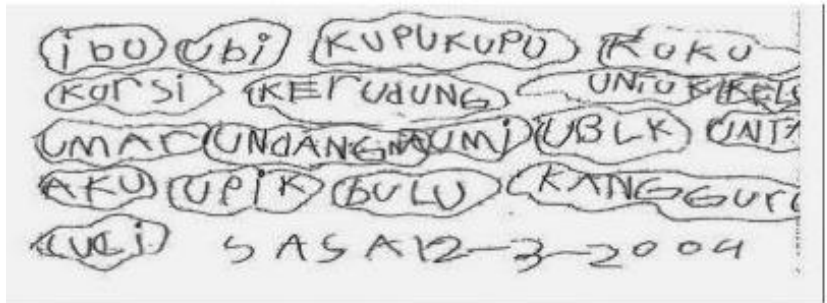 ibu ubi KUPUKUPU KUKU
KUrSi KErUdUNG UNTUK KEL
UMAr UNdANG UMi UBLK UNTA
AKU UPIK BULU KANGGUrU
CUCi SASA12-3-2004